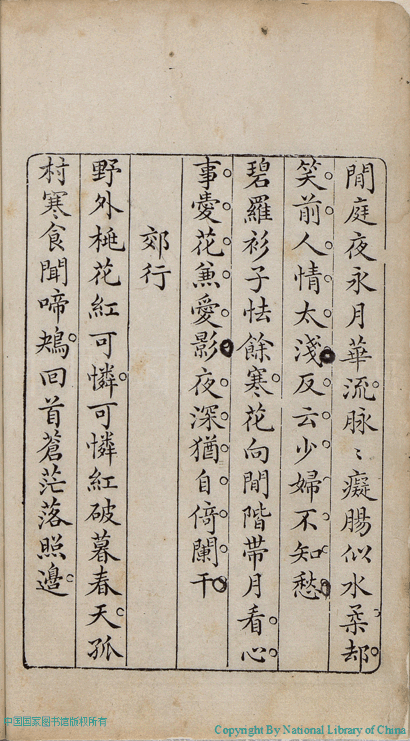 閒庭夜永月華流脉〻癡腸似水柔却
笑前人情太淺反云少婦不知愁
碧羅衫子怯餘寒花向閒階帶月看心
事愛花兼愛影夜深猶自倚闌干
郊行
野外桃花紅可憐可憐紅破暮春天孤
村寒食聞啼鴂回首蒼茫落照邊
中国国家图书馆版权所有
Copyright By National Library of China